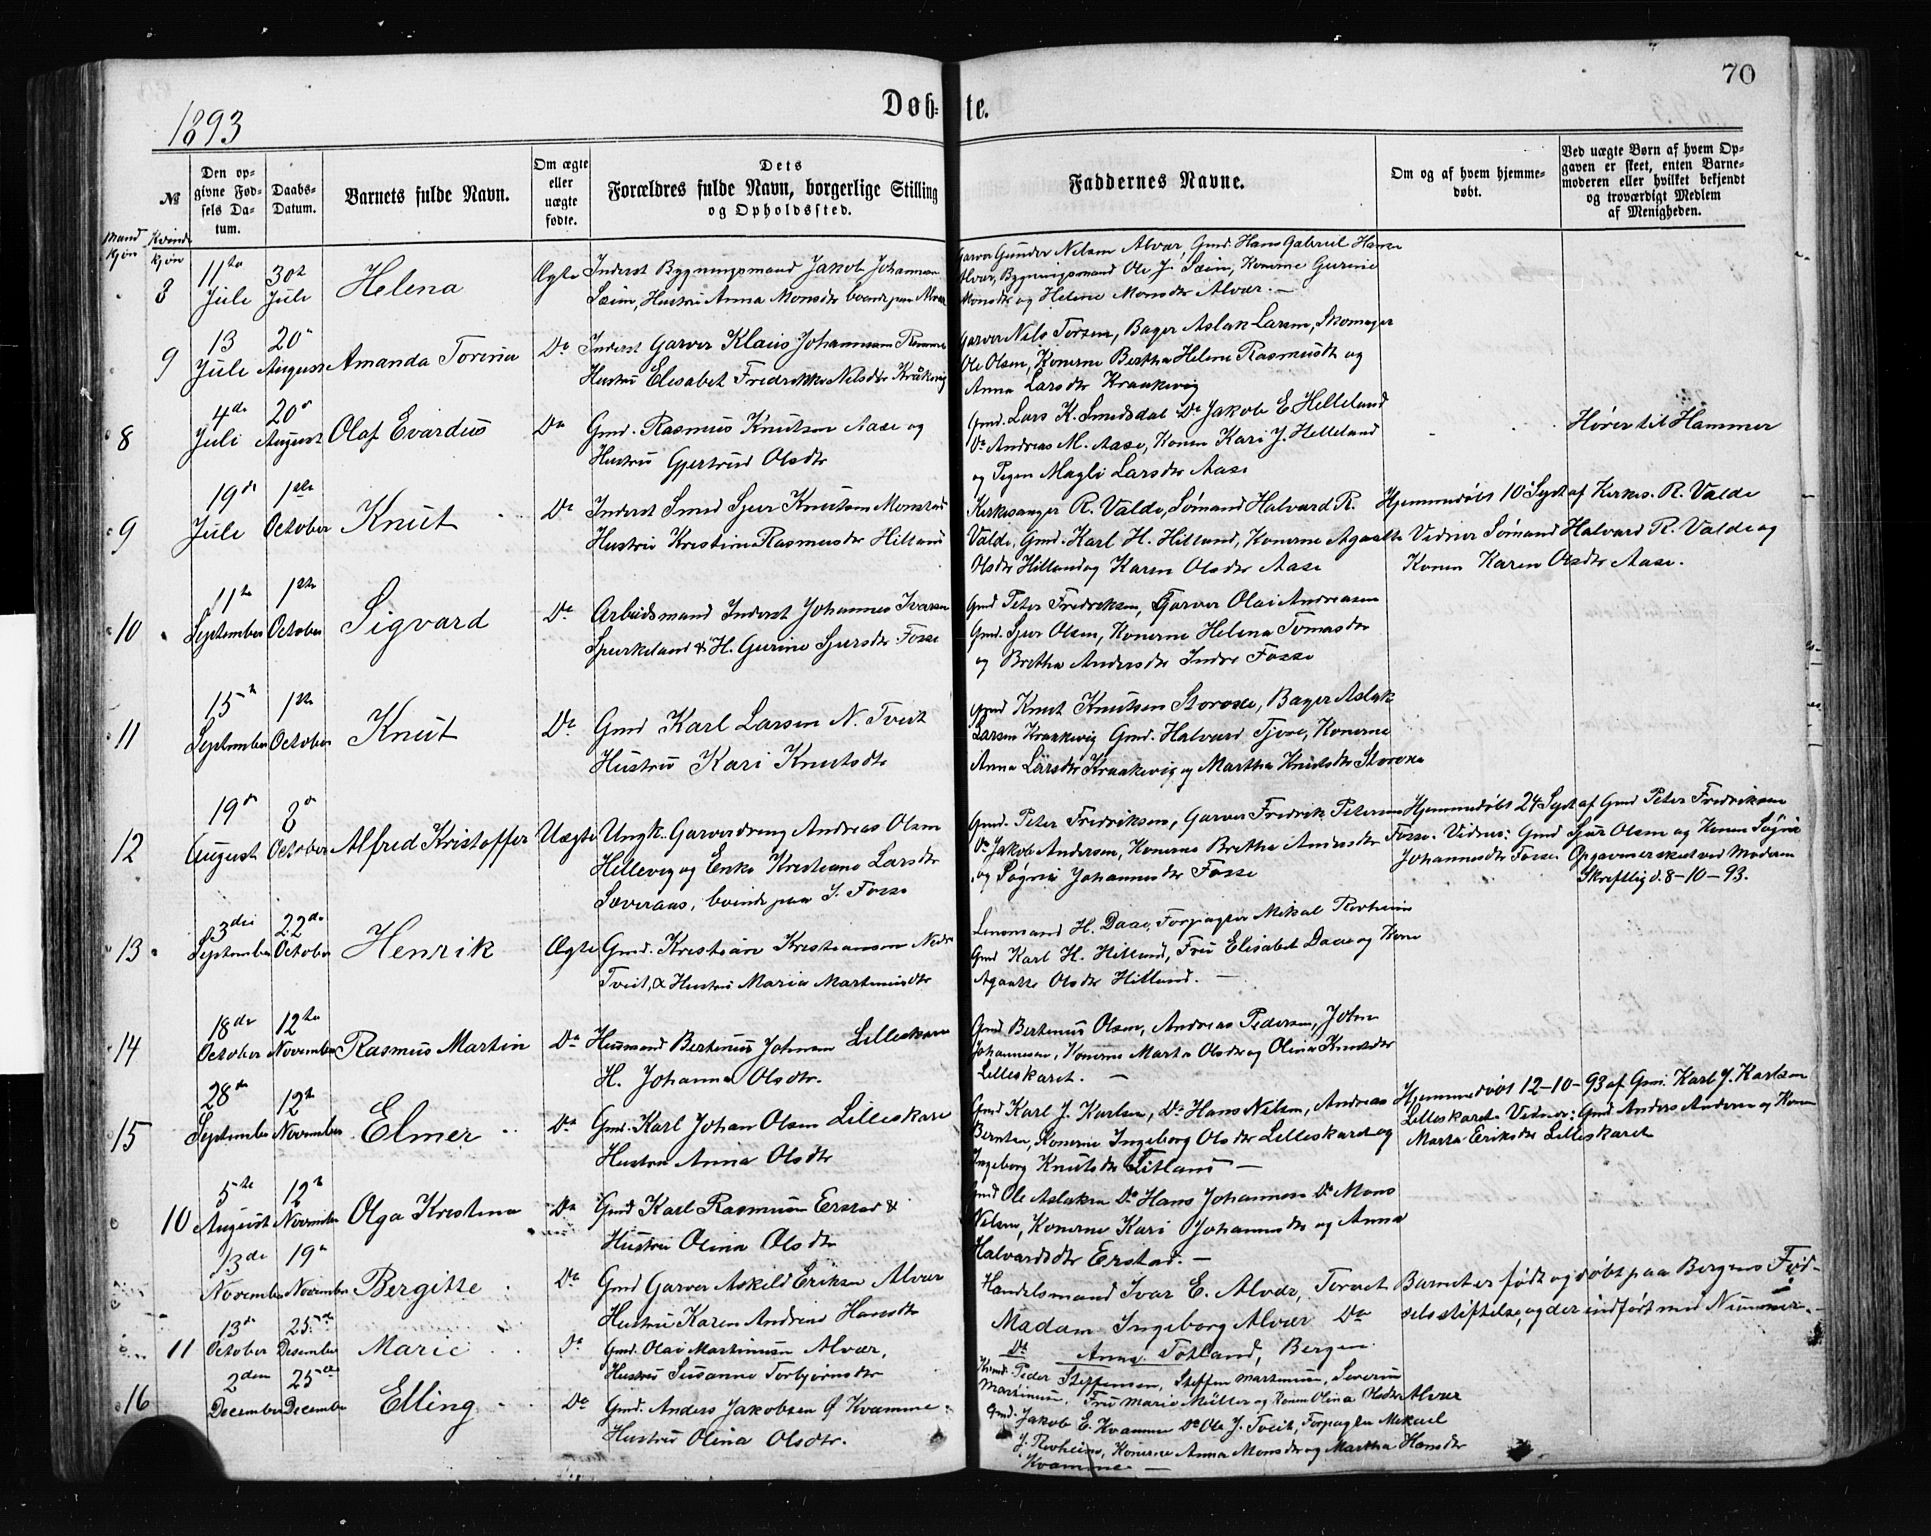 70
1893
Døb-te.
№
Den opgivne Fødsels Datum.
Daabs-Datum.
Barnets fulde Navn.
Om ægte eller uægte fødte.
Dets Forældres fulde Navn, borgerlige Stilling og Opholdssted.
Faddernes Navne.
Om og af hvem hjemmedøbt.
Ved uægte Børn af hvem Opgaven er skeet, enten Barnemoderen eller hvilket bekjendt og troværdigt Medlem af Menigheden.
Mandkjøn
Kvindekjøn
8 11te Juli 30te Juli Helena Ægte
Inderst Bygningsmand Jakob Johannesen
Sæim, Hustru Anna Monsdtr boende paa Alvær
Garver Gunder Nilsen Alvær, Gmd. Hans Gabriel Hansen
Alvær, Bygningsmand Ole J. Sæim, Konerne Gurine
Monsdtr og Helene Monsdtr Alvær. —
9 13 Juli 20 August Amanda Torena Do
Inderst Garver Klaus Johannesen
Hustru Elisabet Fredrikke Nilsdtr Kråkevig
Garver Nils Torsen, Bager Aslak Larsen, Skomager
Ole Olsen, Konerne Bertha Helene Rasmusdtr og
Anna Larsdtr Kraakevig
8 4de Juli 20de August Olaf Evardus Do
Gmd. Rasmus Knutsen Aase og
Hustru Gjertrud Olsdtr
Gmd. Lars K. Smedsdal Do Jakob E Helleland
Do Andreas M. Aase, Konen Kari J. Helleland
og Pigen Magli Larsdtr Aase
Hører til Hammer
9 19de Juli 1ste October Knut Do
Inderst Smed Sjur Knutsen Monstad
Hustru Kristine Rasmusdtr Hilland
Kirkesanger R. Valde, Sømand Halvard R.
Valde, Gmd. Karl H. Hilland, Konerne Agaatte
Olsdtr Hilland og Karen Olsdtr Aase
Hjemmedøbt 10 Sept af Kirkes. R. Valde
Vidner Sømand Halvard R. Valde og
Konen Karen Olsdtr Aase.
10 11te September 1ste October Sigvard Do
Arbeidsmand Inderst Johannes Iversen
Spurkeland & H. Gurine Sjursdtr Fosse
Gmd Peter Fredriksen, Garver Olai Andreasen
Gmd. Sjur Olsen, Konerne Helena Tomasdtr
og Bretha Andersdtr Indre Fosse
11 15te September 1ste October Knut Do
Gmd Karl Larsen N. Tveit
Hustru Kari Knutsdtr
Gmd Knut Knutsen Storoxe, Bager Aslak
Larsen Kraakevig Gmd. Halvard Tjore, Konerne
Anna Larsdtr Kraakevig og Martha Knutsdtr Storoxe
12 19de August 8de October Alfred Kristoffer Uægte
Ungk. Garverdreng Andreas Olsen
Hillevig og Enke Kristiane Larsdtr
Sæveraas, boende paa I. Fosse
Gmd. Peter Fredriksen, Garver Fredrik Petersen
Do Jakob Andersen, Konerne Bretha Andersdtr
og Sygni Johannesdtr Fosse
Hjemmedøbt 24 Sept af Gmd Peter Fredriksen
Fosse. Vidner: Gmd Sjur Olsen og Konen Sygni
Johannesdtr Fosse. Opgaven er skeet ved Moderen
Skriftlig d. 8-10-93.
13 3die September 22de October Henrik Ægte
Gmd. Kristian Kristiansen Nedre
Tveit, & Hustru Maria Martinusdtr
Lensmand H. Daae, Forpagter Mikal Revheim
Gmd Karl H. Hilland, Fru Elisabet Daae og Kone
Agaatte Olsdtr Hilland. —
14 18de October 12te November Rasmus Martin Do
Husmand Bertinus Johnsen Lilleskare
H. Johanna Olsdtr.
Gmd Bertinus Olsen, Andreas Pedersen, John
Johannesen, Konerne Marta Olsdtr og Olina Knutsdtr
Lilleskaret. —
15 28de September 12te November Elmer Do
Gmd. Karl Johan Olsen Lilleskare
Hustru Anna Olsdtr
Gmd Karl J. Karlsen, Do Hans Nilsen, Andreas
Berntsen, Konerne Ingeborg Olsdtr Lilleskaret og
Ingeborg Knutsdtr Titland —
Hjemmedøbt 12-10-93 af Gmd. Karl J. Karlsen
Lilleskaret. Vidner: Gmd Anders Andersen og Konen
Marta Eriksdtr Lilleskaret
10 5te August 12te November Olga Kristina Do
Gmd Karl Rasmussen Erstad &
Hustru Olina Olsdtr
Gmd Ole Aslaksen Do Hans Johannesen Do Mons
Nilsen, Konerne Kari Johannesdtr og Anna
Halvardsdtr Erstad. —
13de November 19de November Bergitte Do
Gmd Garver Askild Eriksen Alvær
Hustru Karen Andrine Hansdtr
Handelsmand Ivar E. Alvær, Torvet
Madam Ingeborg Alvær Do
Do Anna Totland, Bergen.
Barnet er født og døbt paa Bergens Fødselsstiftelse, og der indført med Nummer.
11 13de October 25de Desember Marie Do
Gmd. Olai Martinusen Alvær,
Hustru Susanne Torbjørnsdtr
Peder Steffensen, Steffen Martinusen, Severin
Martinusen, Fru Marie Müller og Konen Olina Olsdtr Alvær
16 2den December 25de December Elling Do
Gmd. Anders Jakobsen Ø Kvamme.
Hustru Olina Olsdtr.
Gmd. Jakob E. Kvamme Do Ole J. Tveit, Forpagter Mikael
J. Revheim, Konerne Anna Monsdtr og Martha Hansdtr
Kvamme. —